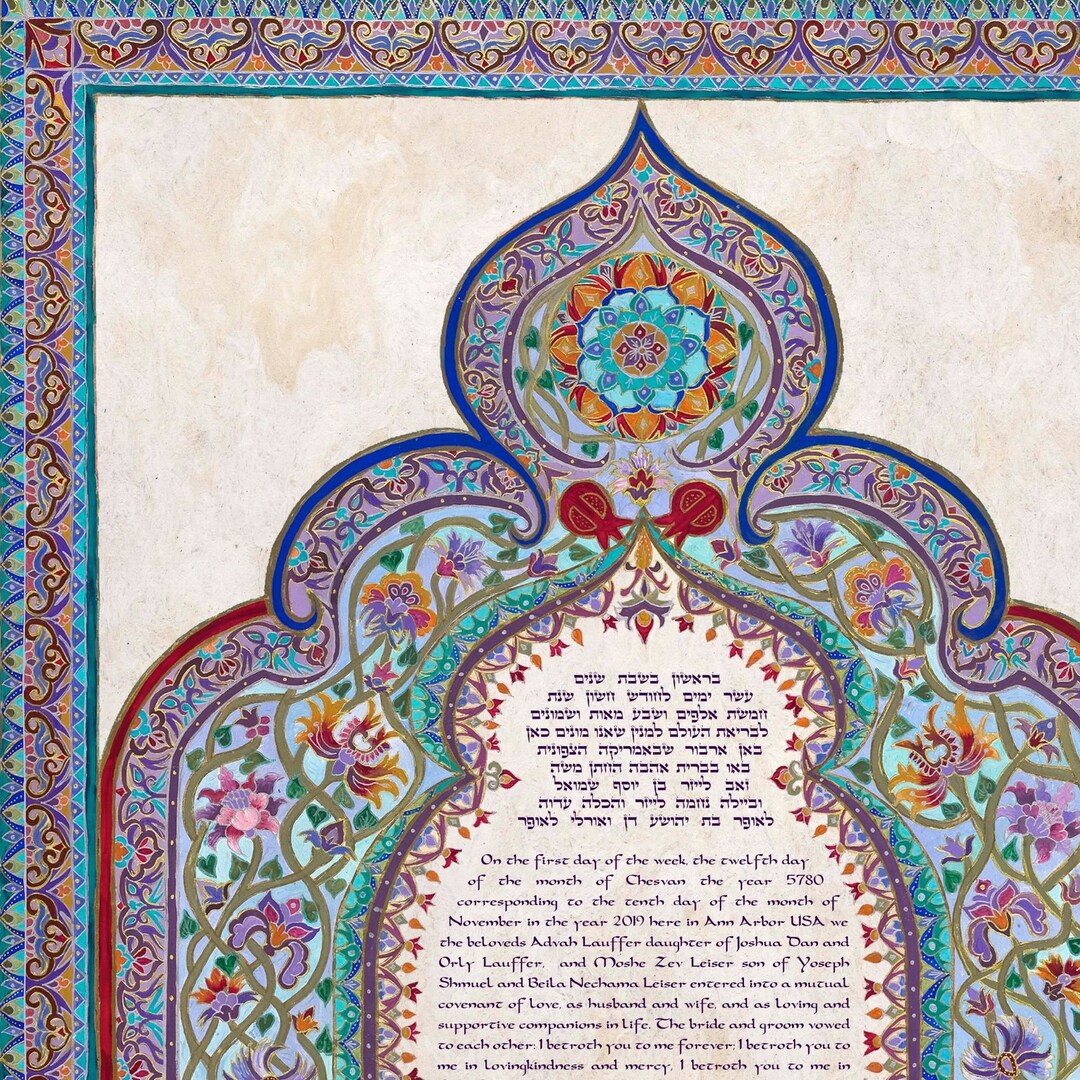 בראשון בשבת שנים
עשר ימים לחודש חשון שנת
חמשת אלפים ושבע מאות ושמונים
לבריאת העולם למנין שאנו מונים כאן
באן ארבור שבאמריקה הצפונית
באו בברית אהבה החתן משה
זאב לייזר בן יוסף שמואל
וביילה נחמה לייזר והכלה עדוה
לאופר בת יהושע דן ואורלי לאופר
On the first day of the week, the twelfth day
of the month of Chesvan the year 5780
corresponding to the tenth day of the month of
November in the year 2019 here in Ann Arbor USA we
the beloveds Advah Lauffer daughter of Joshua Dan and
Orly Lauffer, and Moshe Zev Leiser son of Yoseph
Shmuel and Beila Nechama Leiser entered into a mutual
covenant of love, as husband and wife, and as loving and
supportive companions in life. The bride and groom vowed
to each other: I betroth you to me forever; I betroth you to
me in lovingkindness and mercy, I betroth you to me in